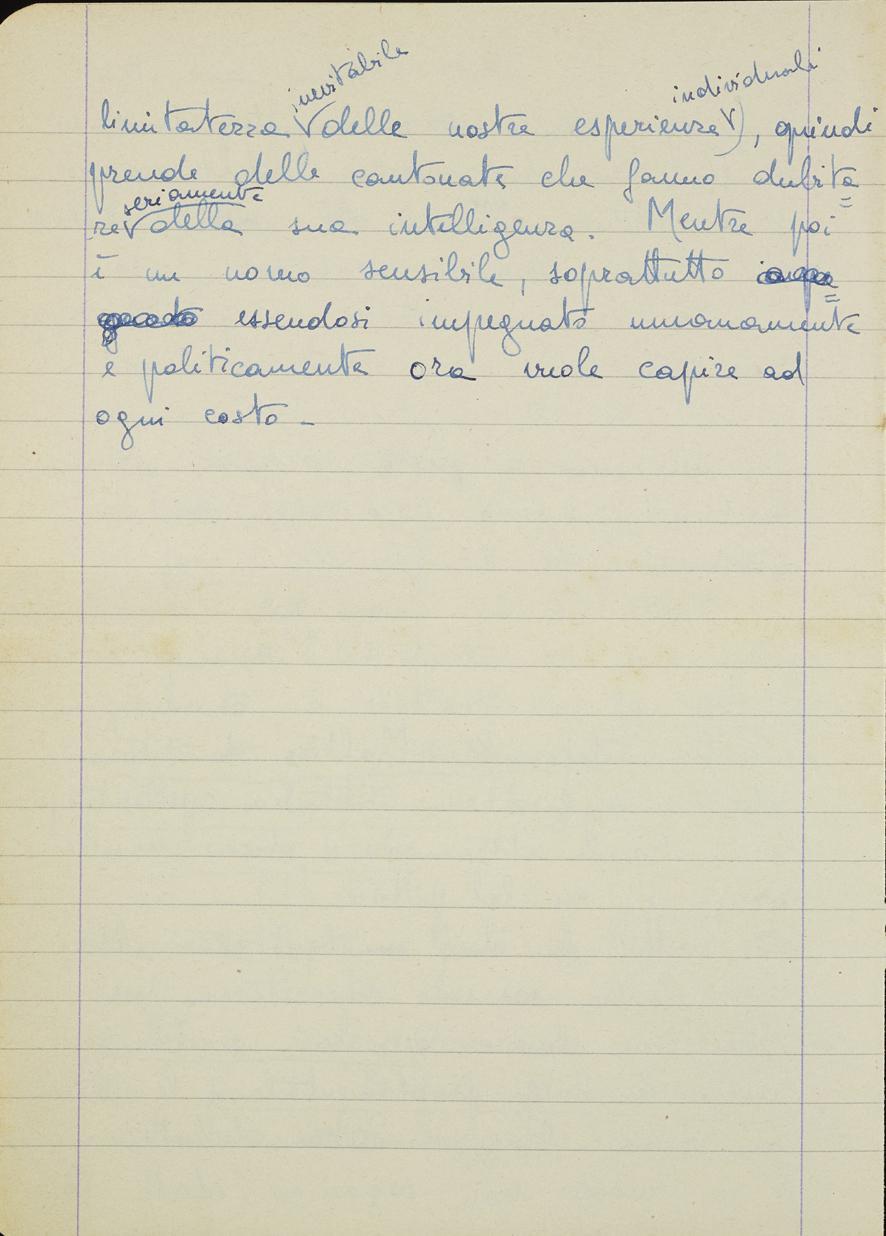 inevitabile individuali
limitatezza √ delle nostre esperienze √), quindi
prende delle cantonate che fanno dubita=
seriamente
re √ della sua intelligenza. Mentre poi
è un uomo sensibile, soprattutto
essendosi impegnato umanamente
e politicamente ora vuole capire ad
ogni costo -